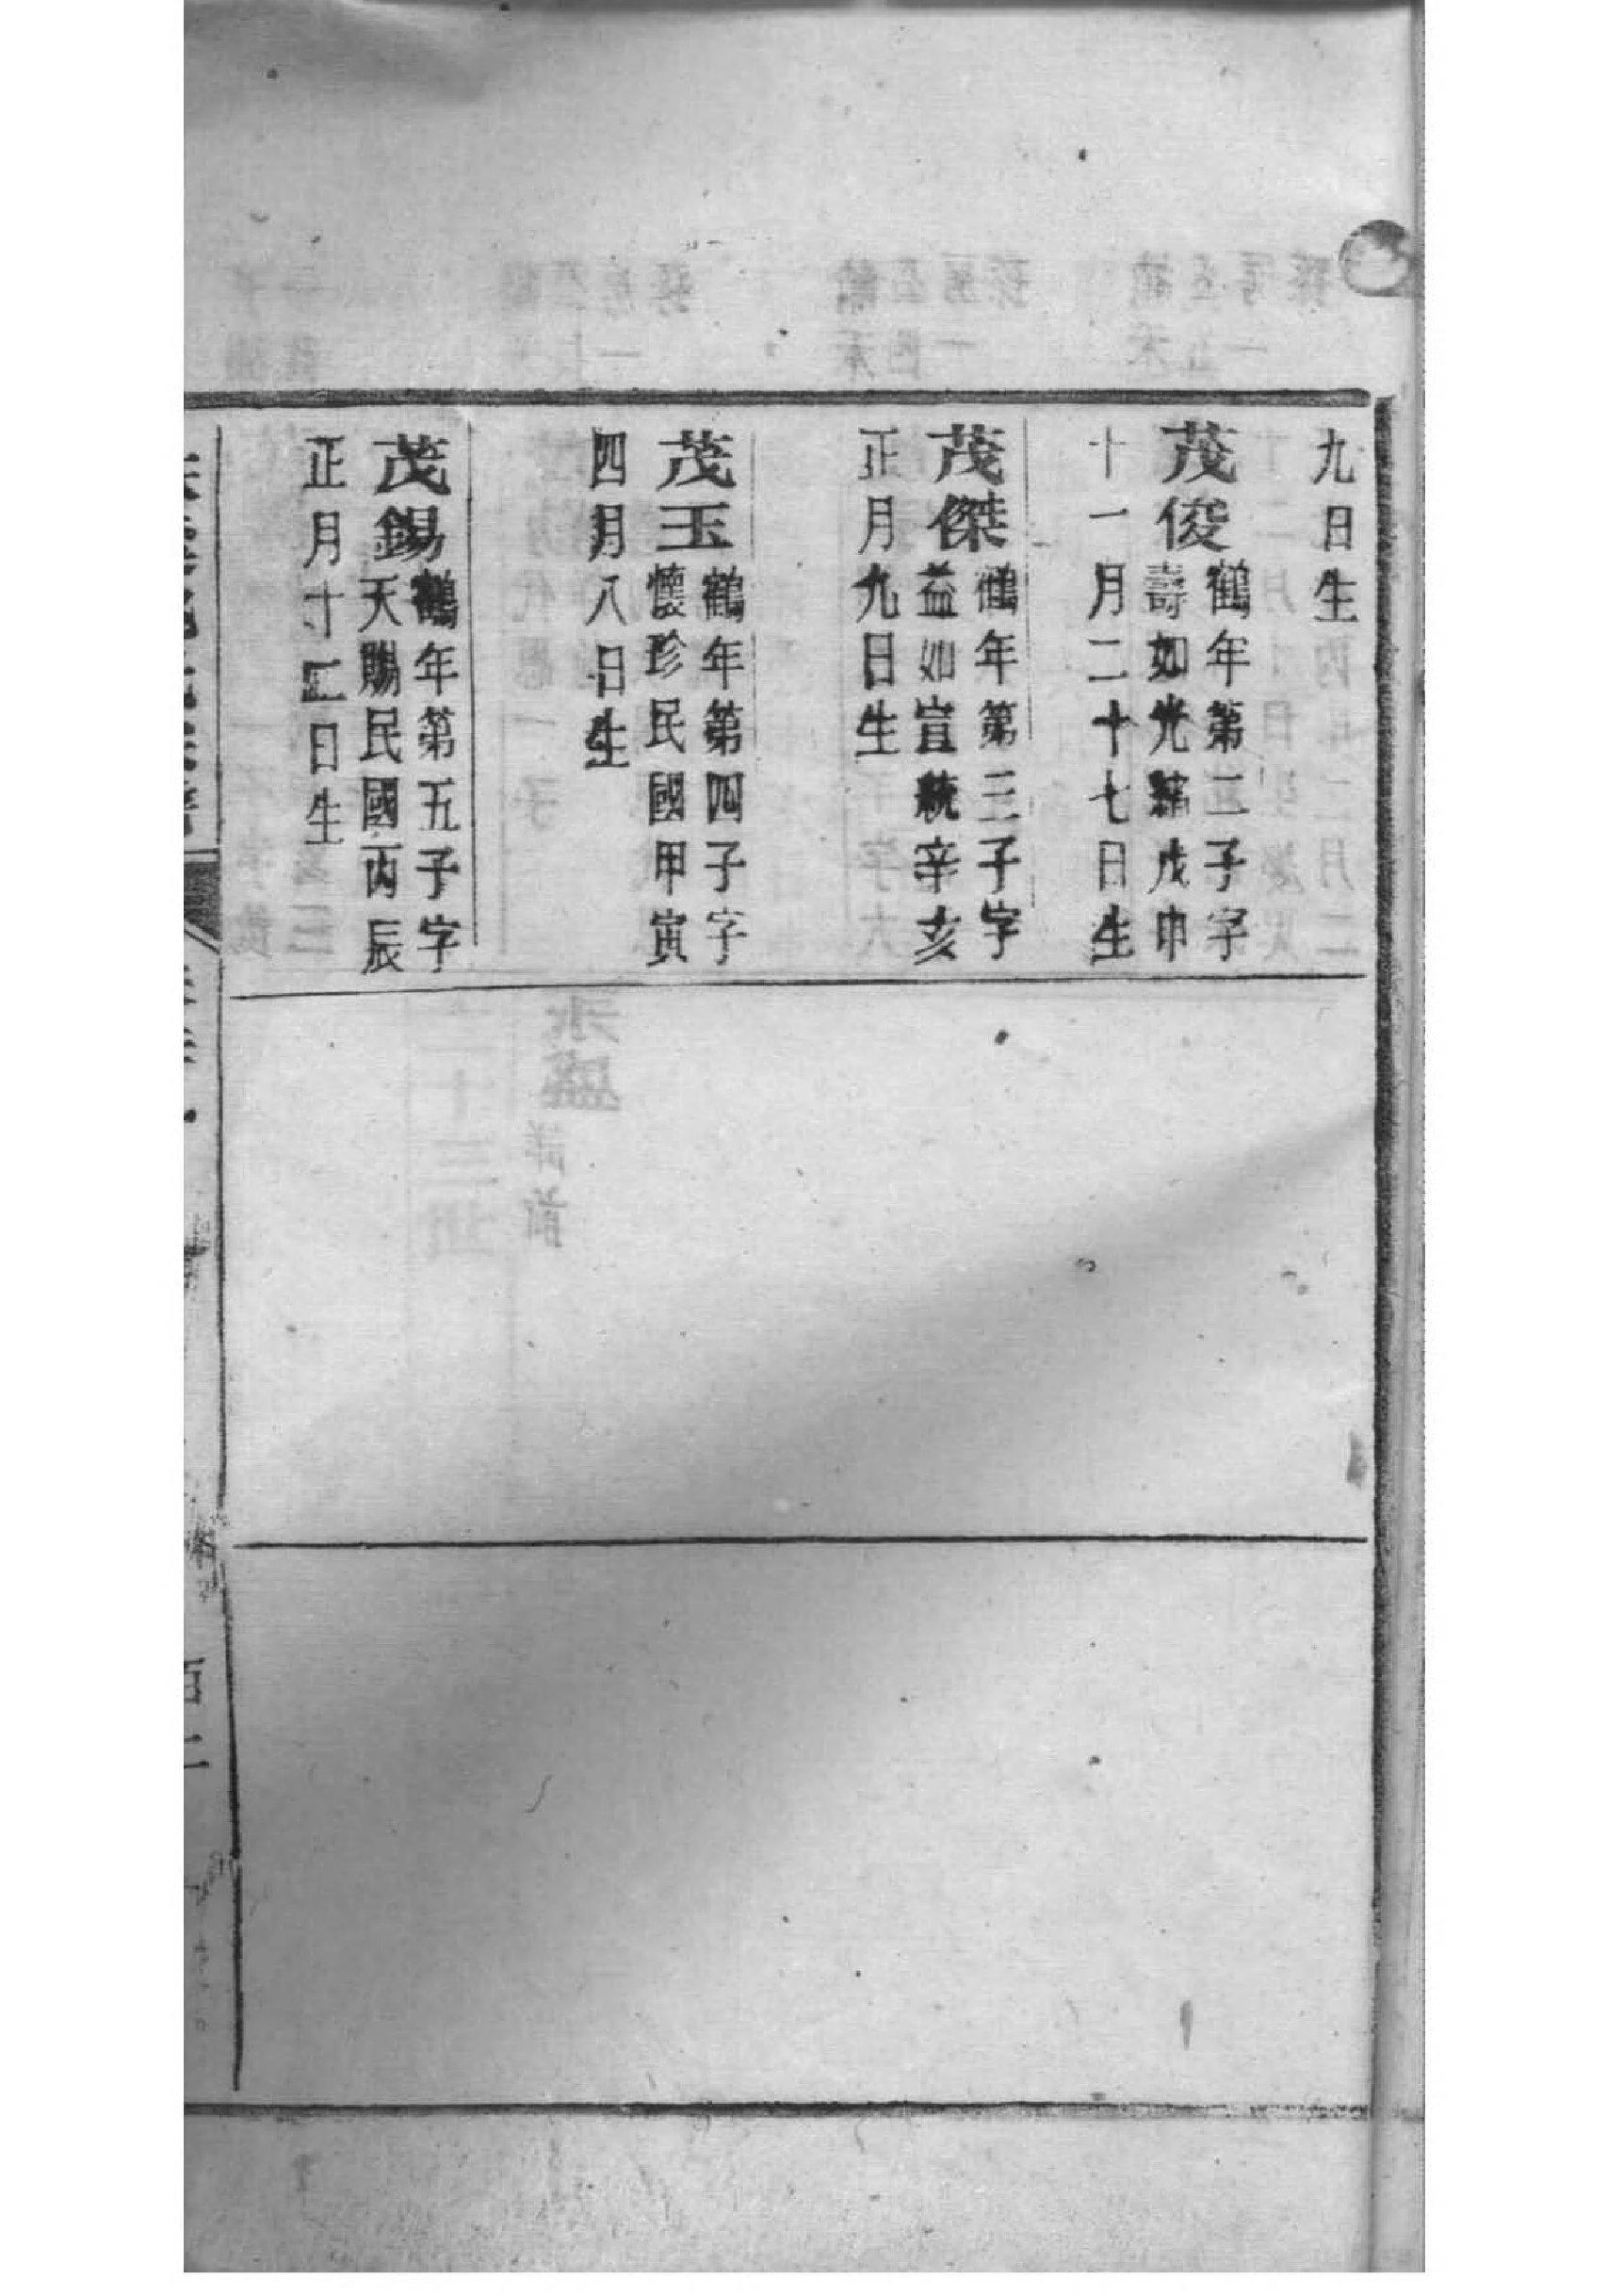 九日生
茂俊
鶴年第二子字
壽如光緒戊申
十一月二十七日生
茂傑
鶴年第三子字
益如宣統辛亥
正月九日生
茂玉
鶴年第四子字
懷珍民國甲寅
四月八日生
茂錫
鶴年第五子字
天賜民國丙辰
正月十二日生
百二